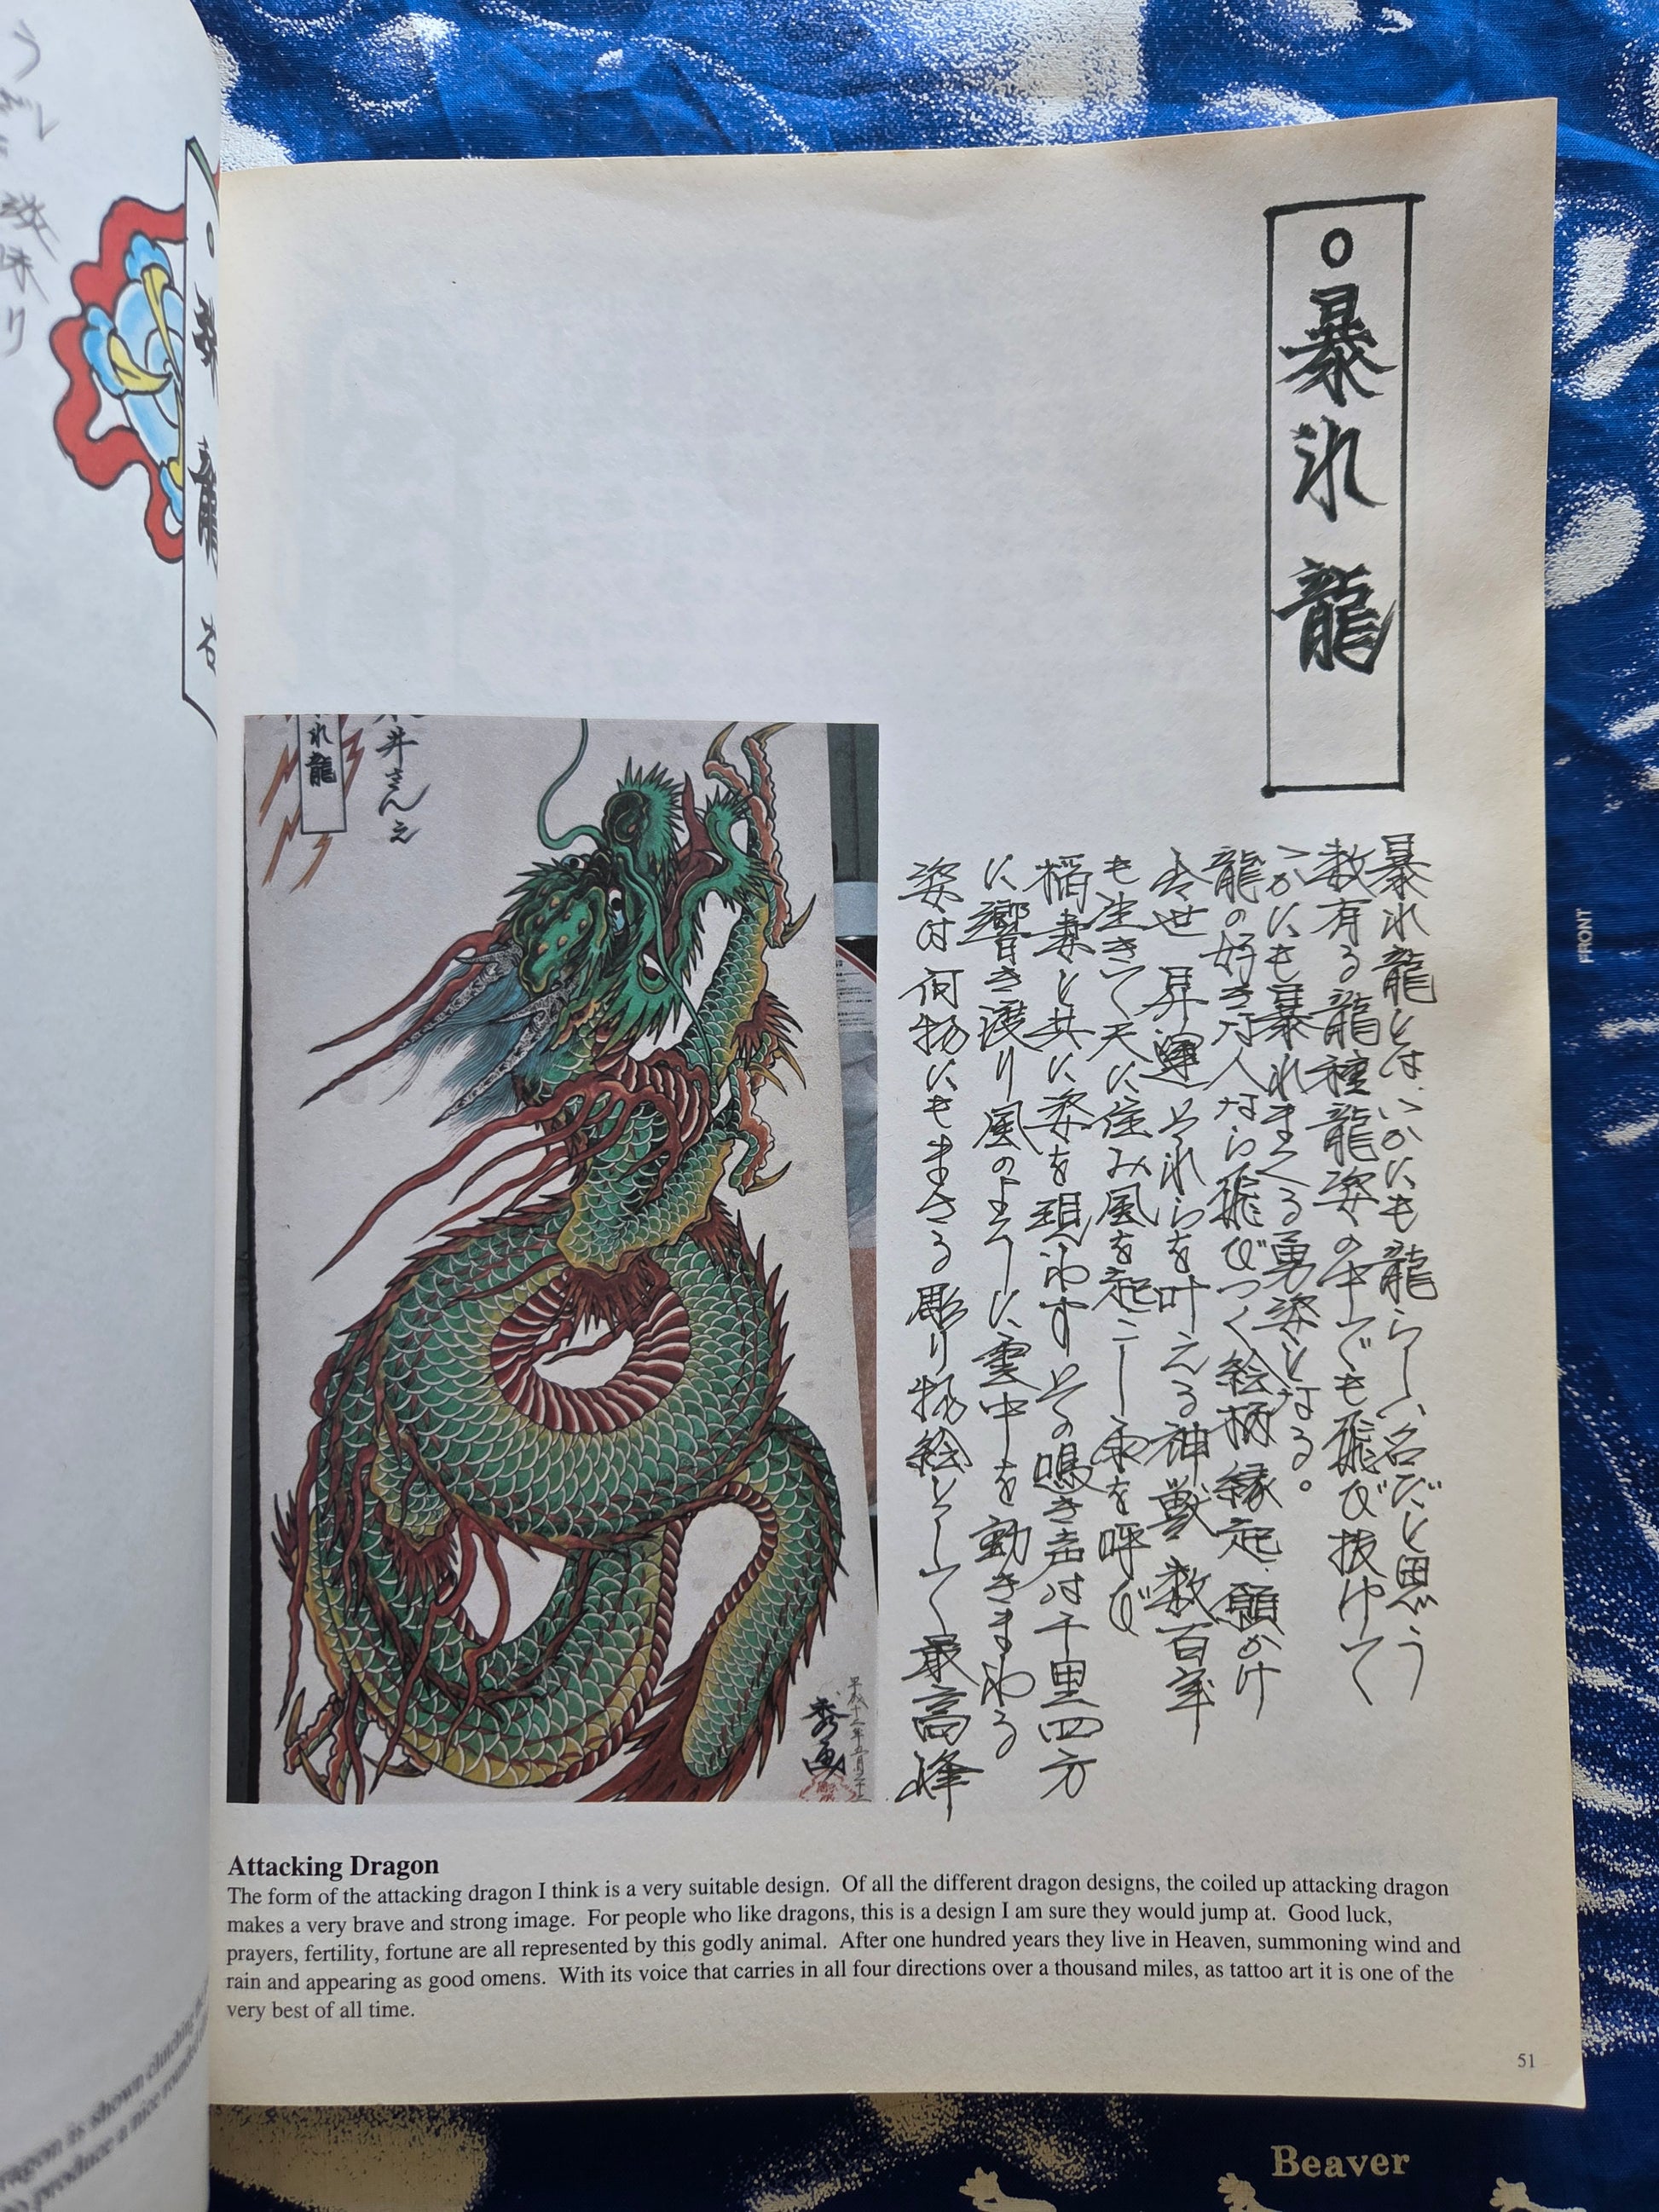 。暴れ龍
暴れ龍とは、いかにも龍らしい名だと思う
数有る龍種龍姿の中でも飛び抜けて
いかにも暴れまくる勇姿となる。
龍の好きな人なら飛びつく絵柄縁起、願かけ
出世 昇運 それらを叶える神獣 数百年
も生きて天に住み風を起こし雨を呼び
稲妻と共に姿を現わす その鳴き声は千里四方
に響き渡り風のように雲中を動きまわる
姿は何物にもまさる彫り物絵として最高峰
れ龍
井さんえ
平成十二年五月
秀画
Attacking Dragon
The form of the attacking dragon I think is a very suitable design. Of all the different dragon designs, the coiled up attacking dragon
makes a very brave and strong image. For people who like dragons, this is a design I am sure they would jump at. Good luck,
prayers, fertility, fortune are all represented by this godly animal. After one hundred years they live in Heaven, summoning wind and
rain and appearing as good omens. With its voice that carries in all four directions over a thousand miles, as tattoo art it is one of the
very best of all time.
51
ragon is shown clutching
o produce a nice rounded
龍
FRONT
Beaver